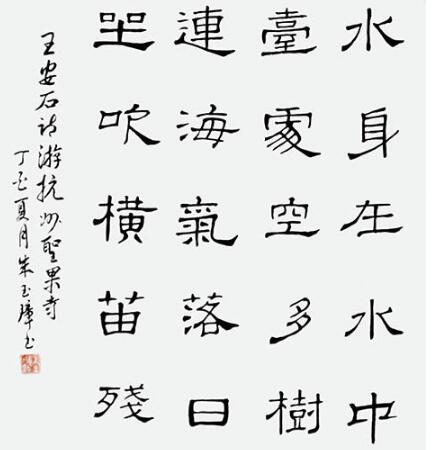 水身在水中
臺處空多樹
連海氣落日
坐吹橫苗殘
王安石诗游杭州聖果寺
丁亥夏月朱玉璋书